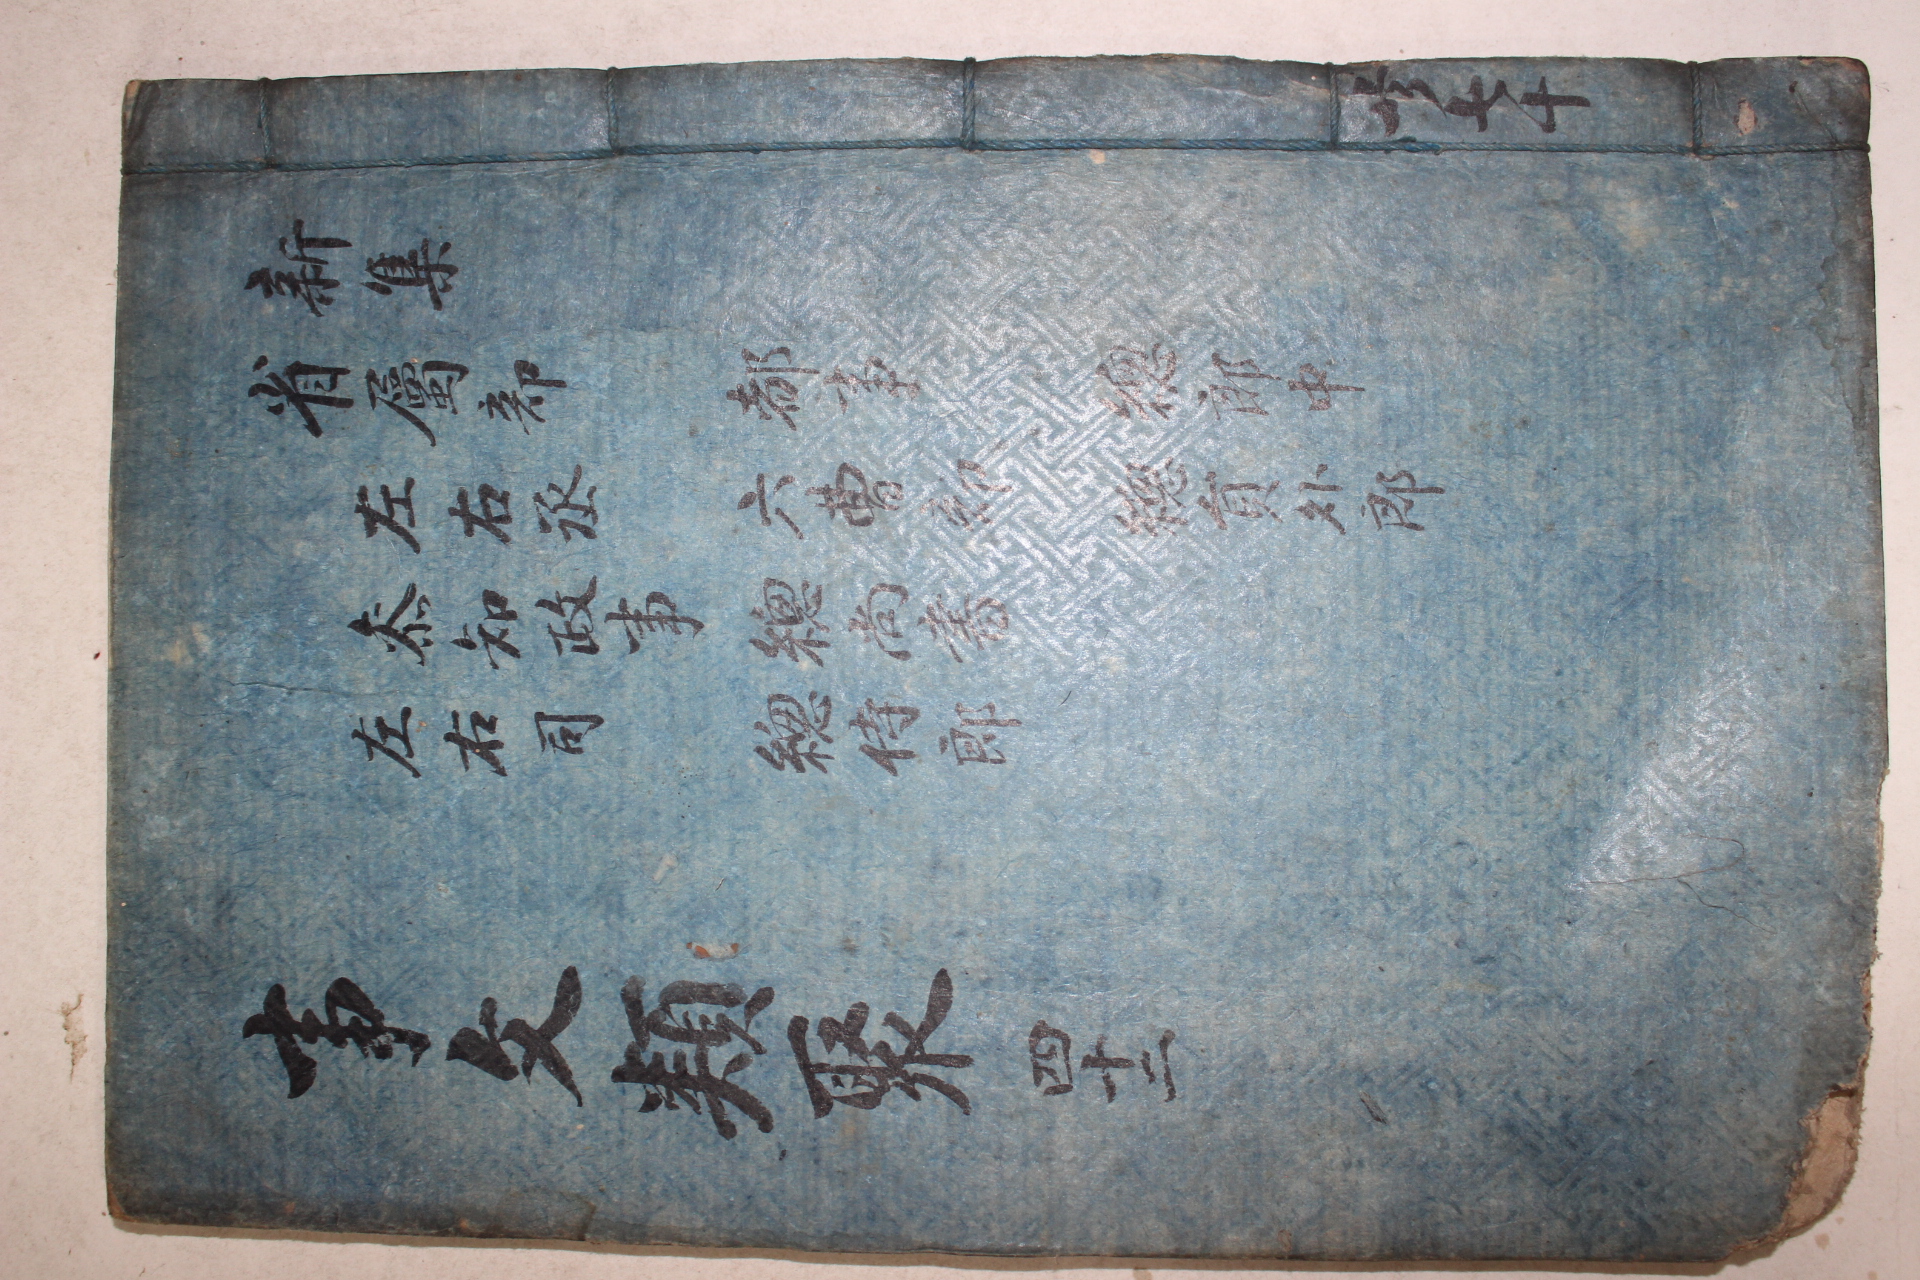 共七十
新集
省屬部 都事 緫郎中
左右丞 六曹部 緫貟外郎
叅知政事 緫尚書
左右司 緫侍郎
事文類聚 四十二